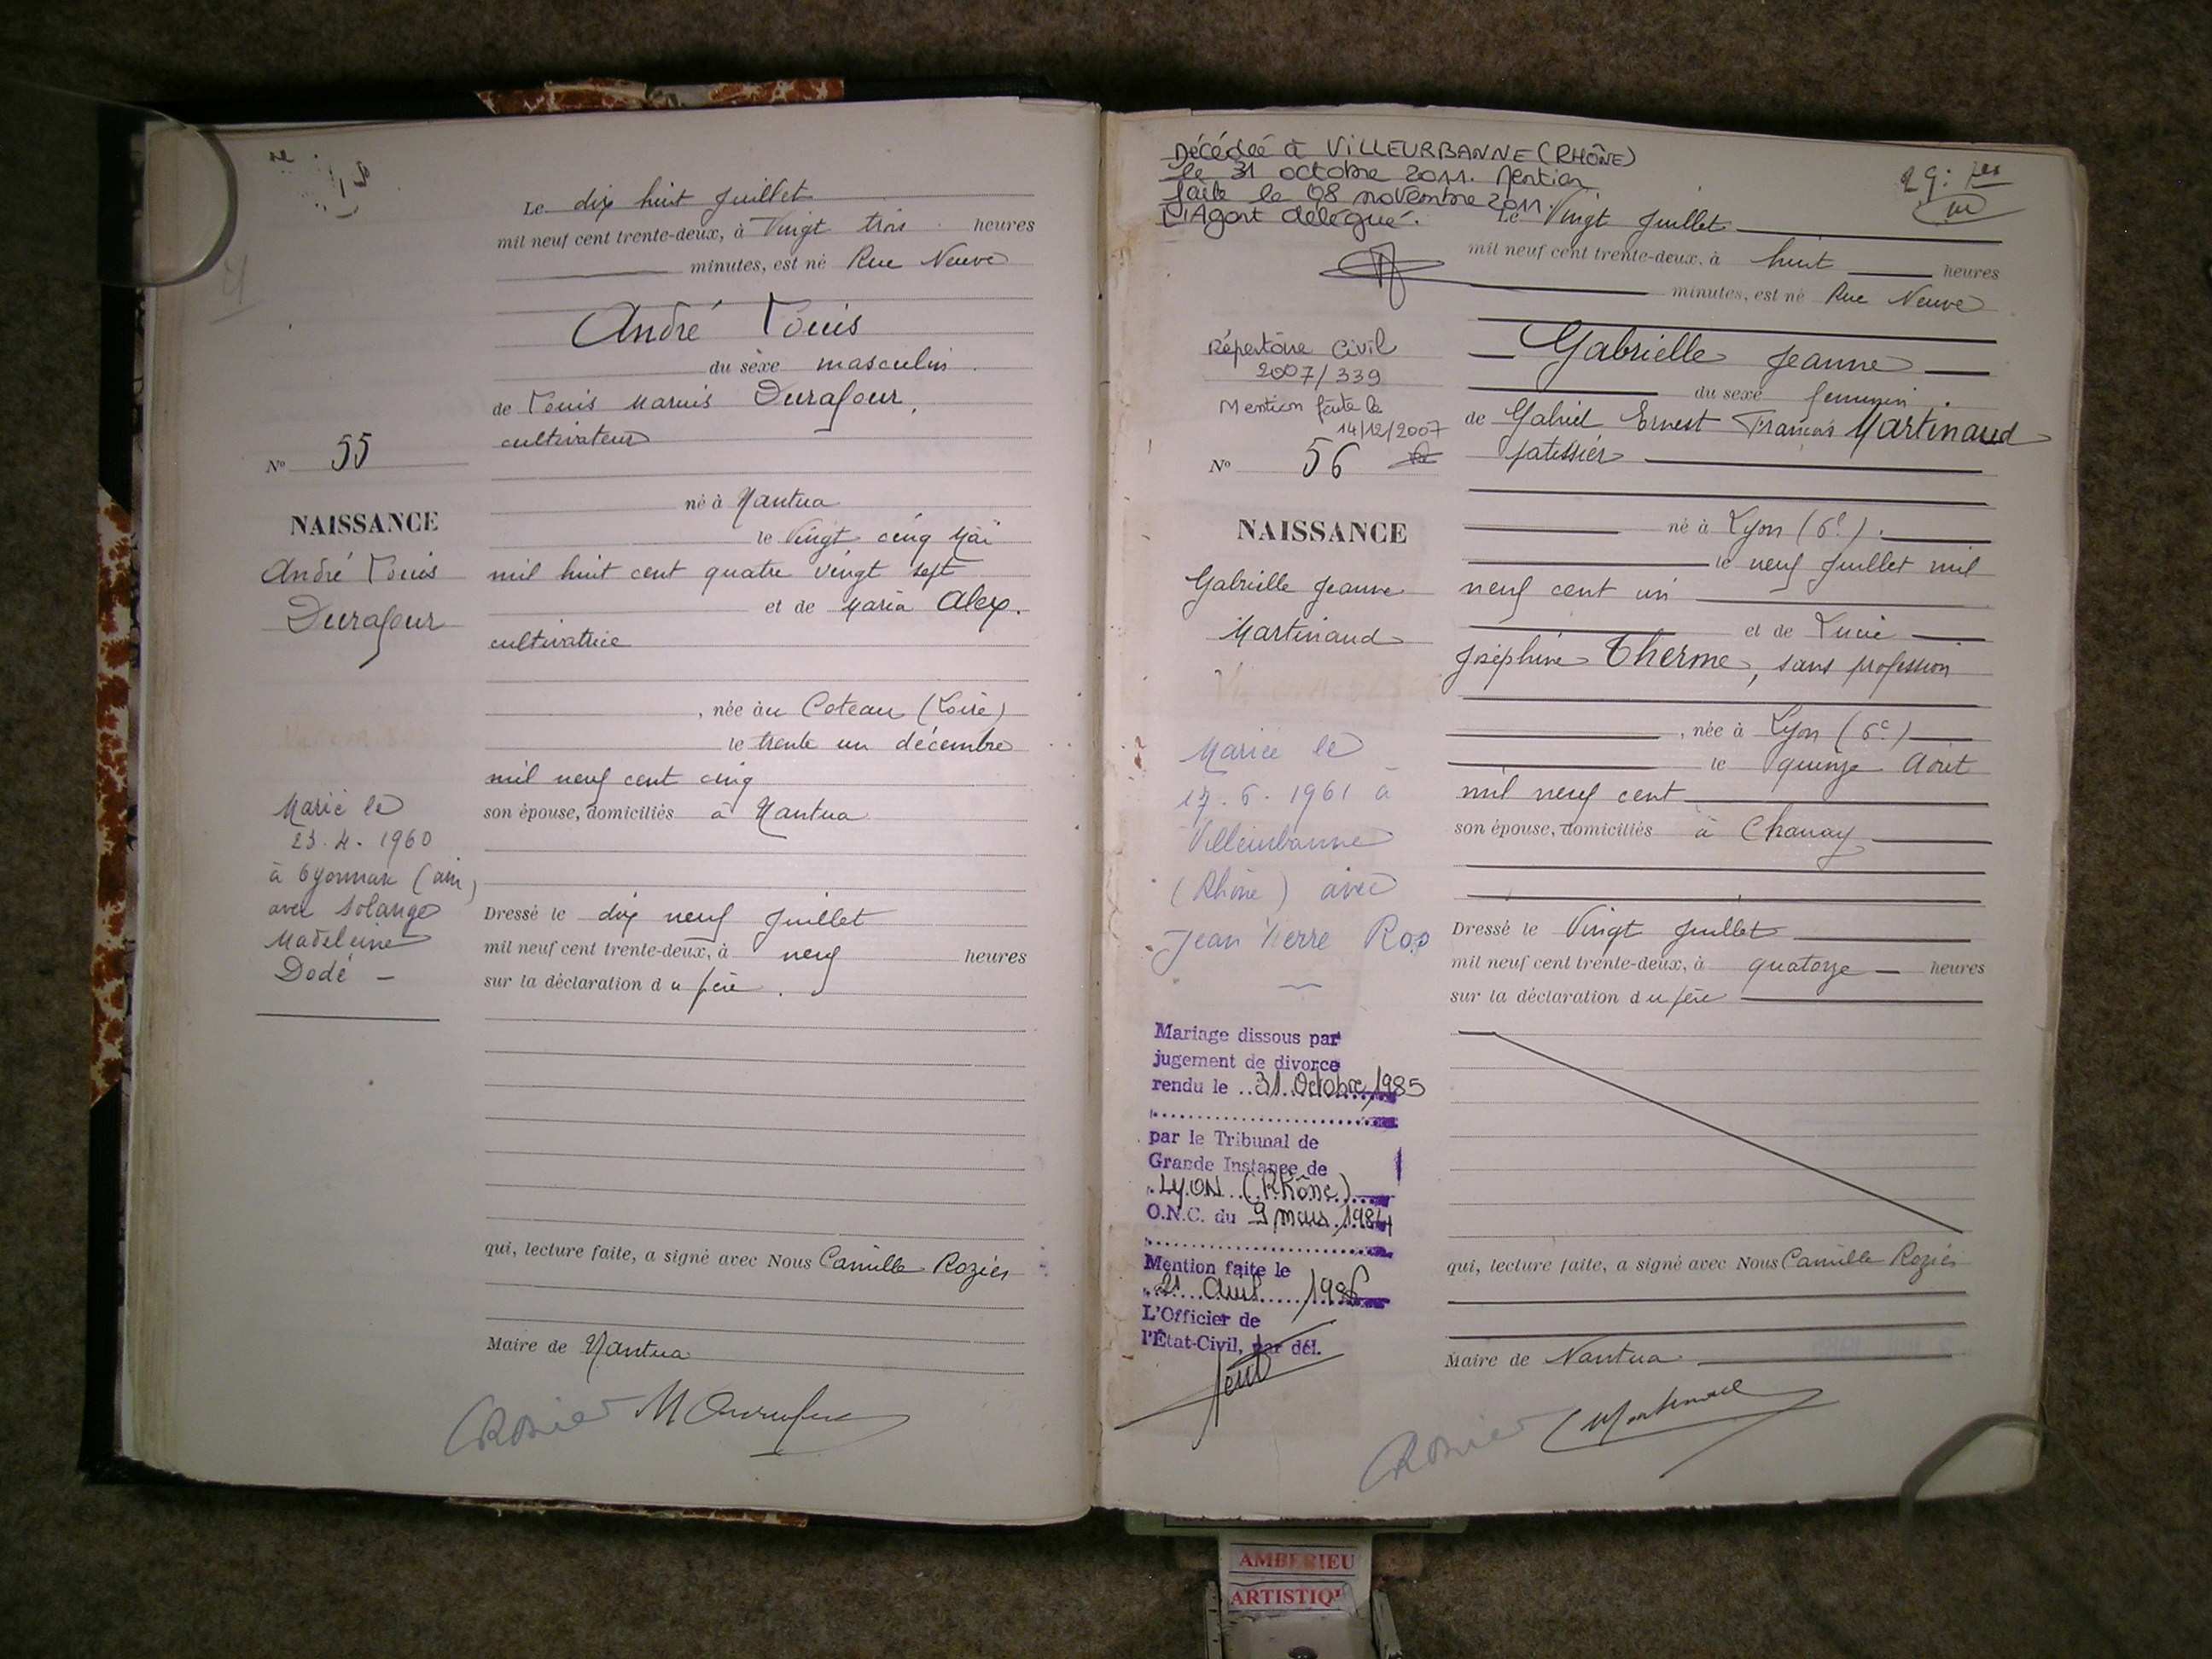 Le dix huit Juillet
mil neuf cent trente-deux, à Vingt trois heures
minutes, est né Rue Neuve
André Louis
du sexe masculin
de Louis Marius Durafour,
cultivateur
N° 55
né à Nantua
NAISSANCE
le Vingt cinq Mai
André Louis
mil huit cent quatre vingt sept
Durafour
et de Maria Alex.
cultivatrice
, née au Coteau (Loire)
le trente un décembre
mil neuf cent cinq
son épouse, domiciliés à Nantua
Marié le
23.4.1960
à Oyonnax (Ain)
avec Solange
Madeleine
Dodé -
Dressé le dix neuf Juillet
mil neuf cent trente-deux, à neuf heures
sur la déclaration du père.
qui, lecture faite, a signé avec Nous Camille Rozier
Maire de Nantua
CRozier
Décédée à VILLEURBANNE (RHÔNE)
le 31 octobre 2011. Mention
faite le 08 novembre 2011.
L'Agent délégué.
Le Vingt Juillet
mil neuf cent trente-deux, à huit heures
minutes, est né Rue Neuve
Répertoire Civil
2007/339
Mention faite le
14/12/2007
Gabrielle Jeanne
du sexe féminin.
de Gabriel Ernest François Martinaud
N° 56
patissier
né à Lyon (6e).
NAISSANCE
le neuf Juillet mil
Gabrielle Jeanne
neuf cent un
Martinaud
et de Lucie
Joséphine Therme, sans profession
, née à Lyon (6e)
le quinze Août
mil neuf cent
son épouse, domiciliés à Chanay
Mariée le
17.6.1961 à
Villeurbanne
(Rhône) avec
Jean Pierre Ros
Dressé le Vingt Juillet
mil neuf cent trente-deux, à quatorze heures
sur la déclaration du père
Mariage dissous par
jugement de divorce
rendu le 31 Octobre 1985
par le Tribunal de
Grande Instance de
LYON (Rhône)
O.N.C. du 9 mars 1984
Mention faite le
21 Avril 1986
L'Officier de
l'État-Civil, par dél.
qui, lecture faite, a signé avec Nous Camille Rozier
Maire de Nantua
CRozier
Martinaud
AMBERIEU
ARTISTIQ